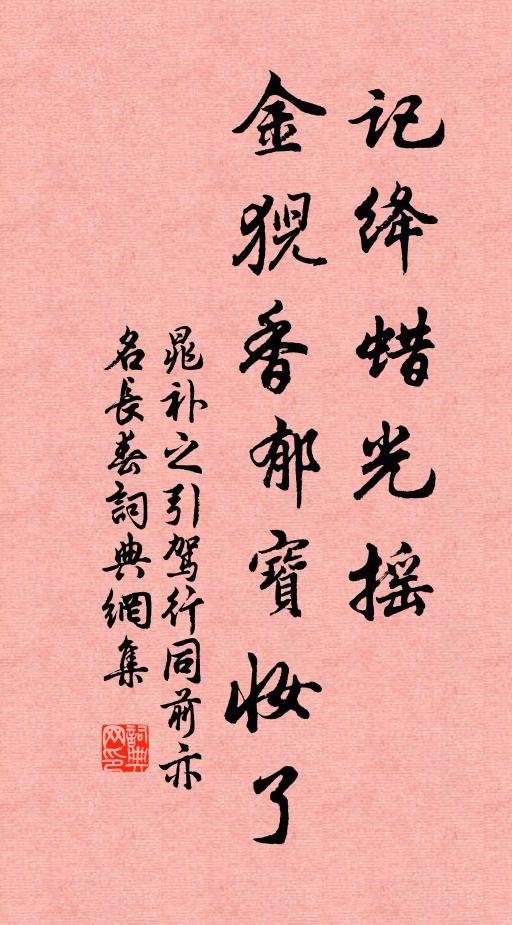 记绛蜡光摇
金猊香郁寶妆了
晁补之引驾行同前亦
名長春詞典網集
詞典
网印